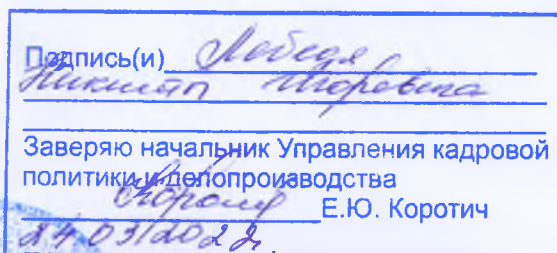 Подпись(и) Лебедя
Никиты Игоревича
Заверяю начальник Управления кадровой
политики и делопроизводства
Е.Ю. Коротич
24.03.2022г.